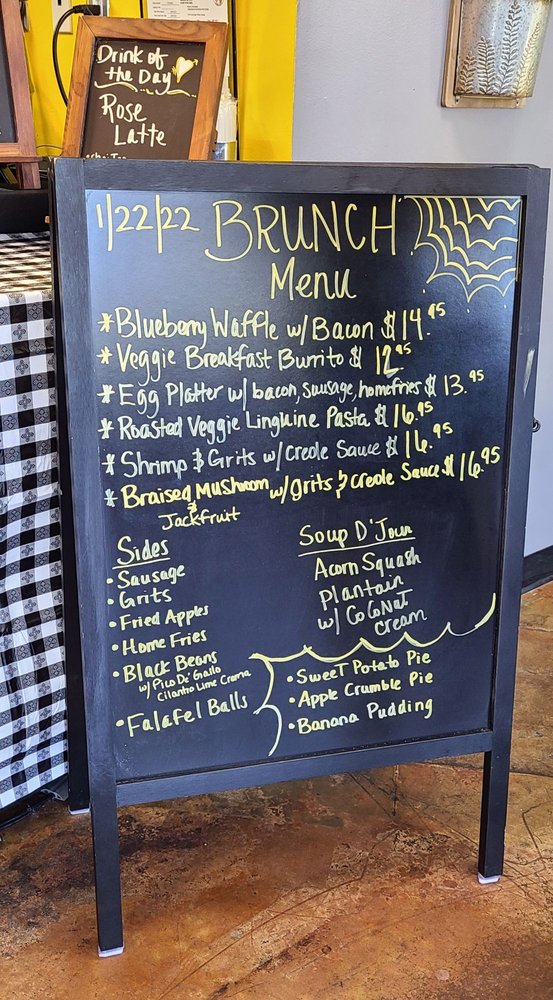 Drink of
the Day
Rose
Latte
1/22/22 BRUNCH
Menu
* Blueberry Waffle w/ Bacon $14.95
* Veggie Breakfast Burrito $ 12.95
* Egg Platter w/ bacon, sausage, homefries $ 13.95
* Roasted Veggie Linguine Pasta $ 16.95
* Shrimp & Grits w/ creole Sauce $ 16.95
* Braised Mushroom w/ Grits & creole Sauce $ 16.95
& Jackfruit
Sides
• Sausage
• Grits
• Fried Apples
• Home Fries
• Black Beans
w/ Pico De' Gallo
Cilantro Lime Crema
• Falafel Balls
Soup D'Jour
Acorn Squash
Plantain
w/ CoCoNut
cream
• Sweet Potato Pie
• Apple Crumble Pie
• Banana Pudding